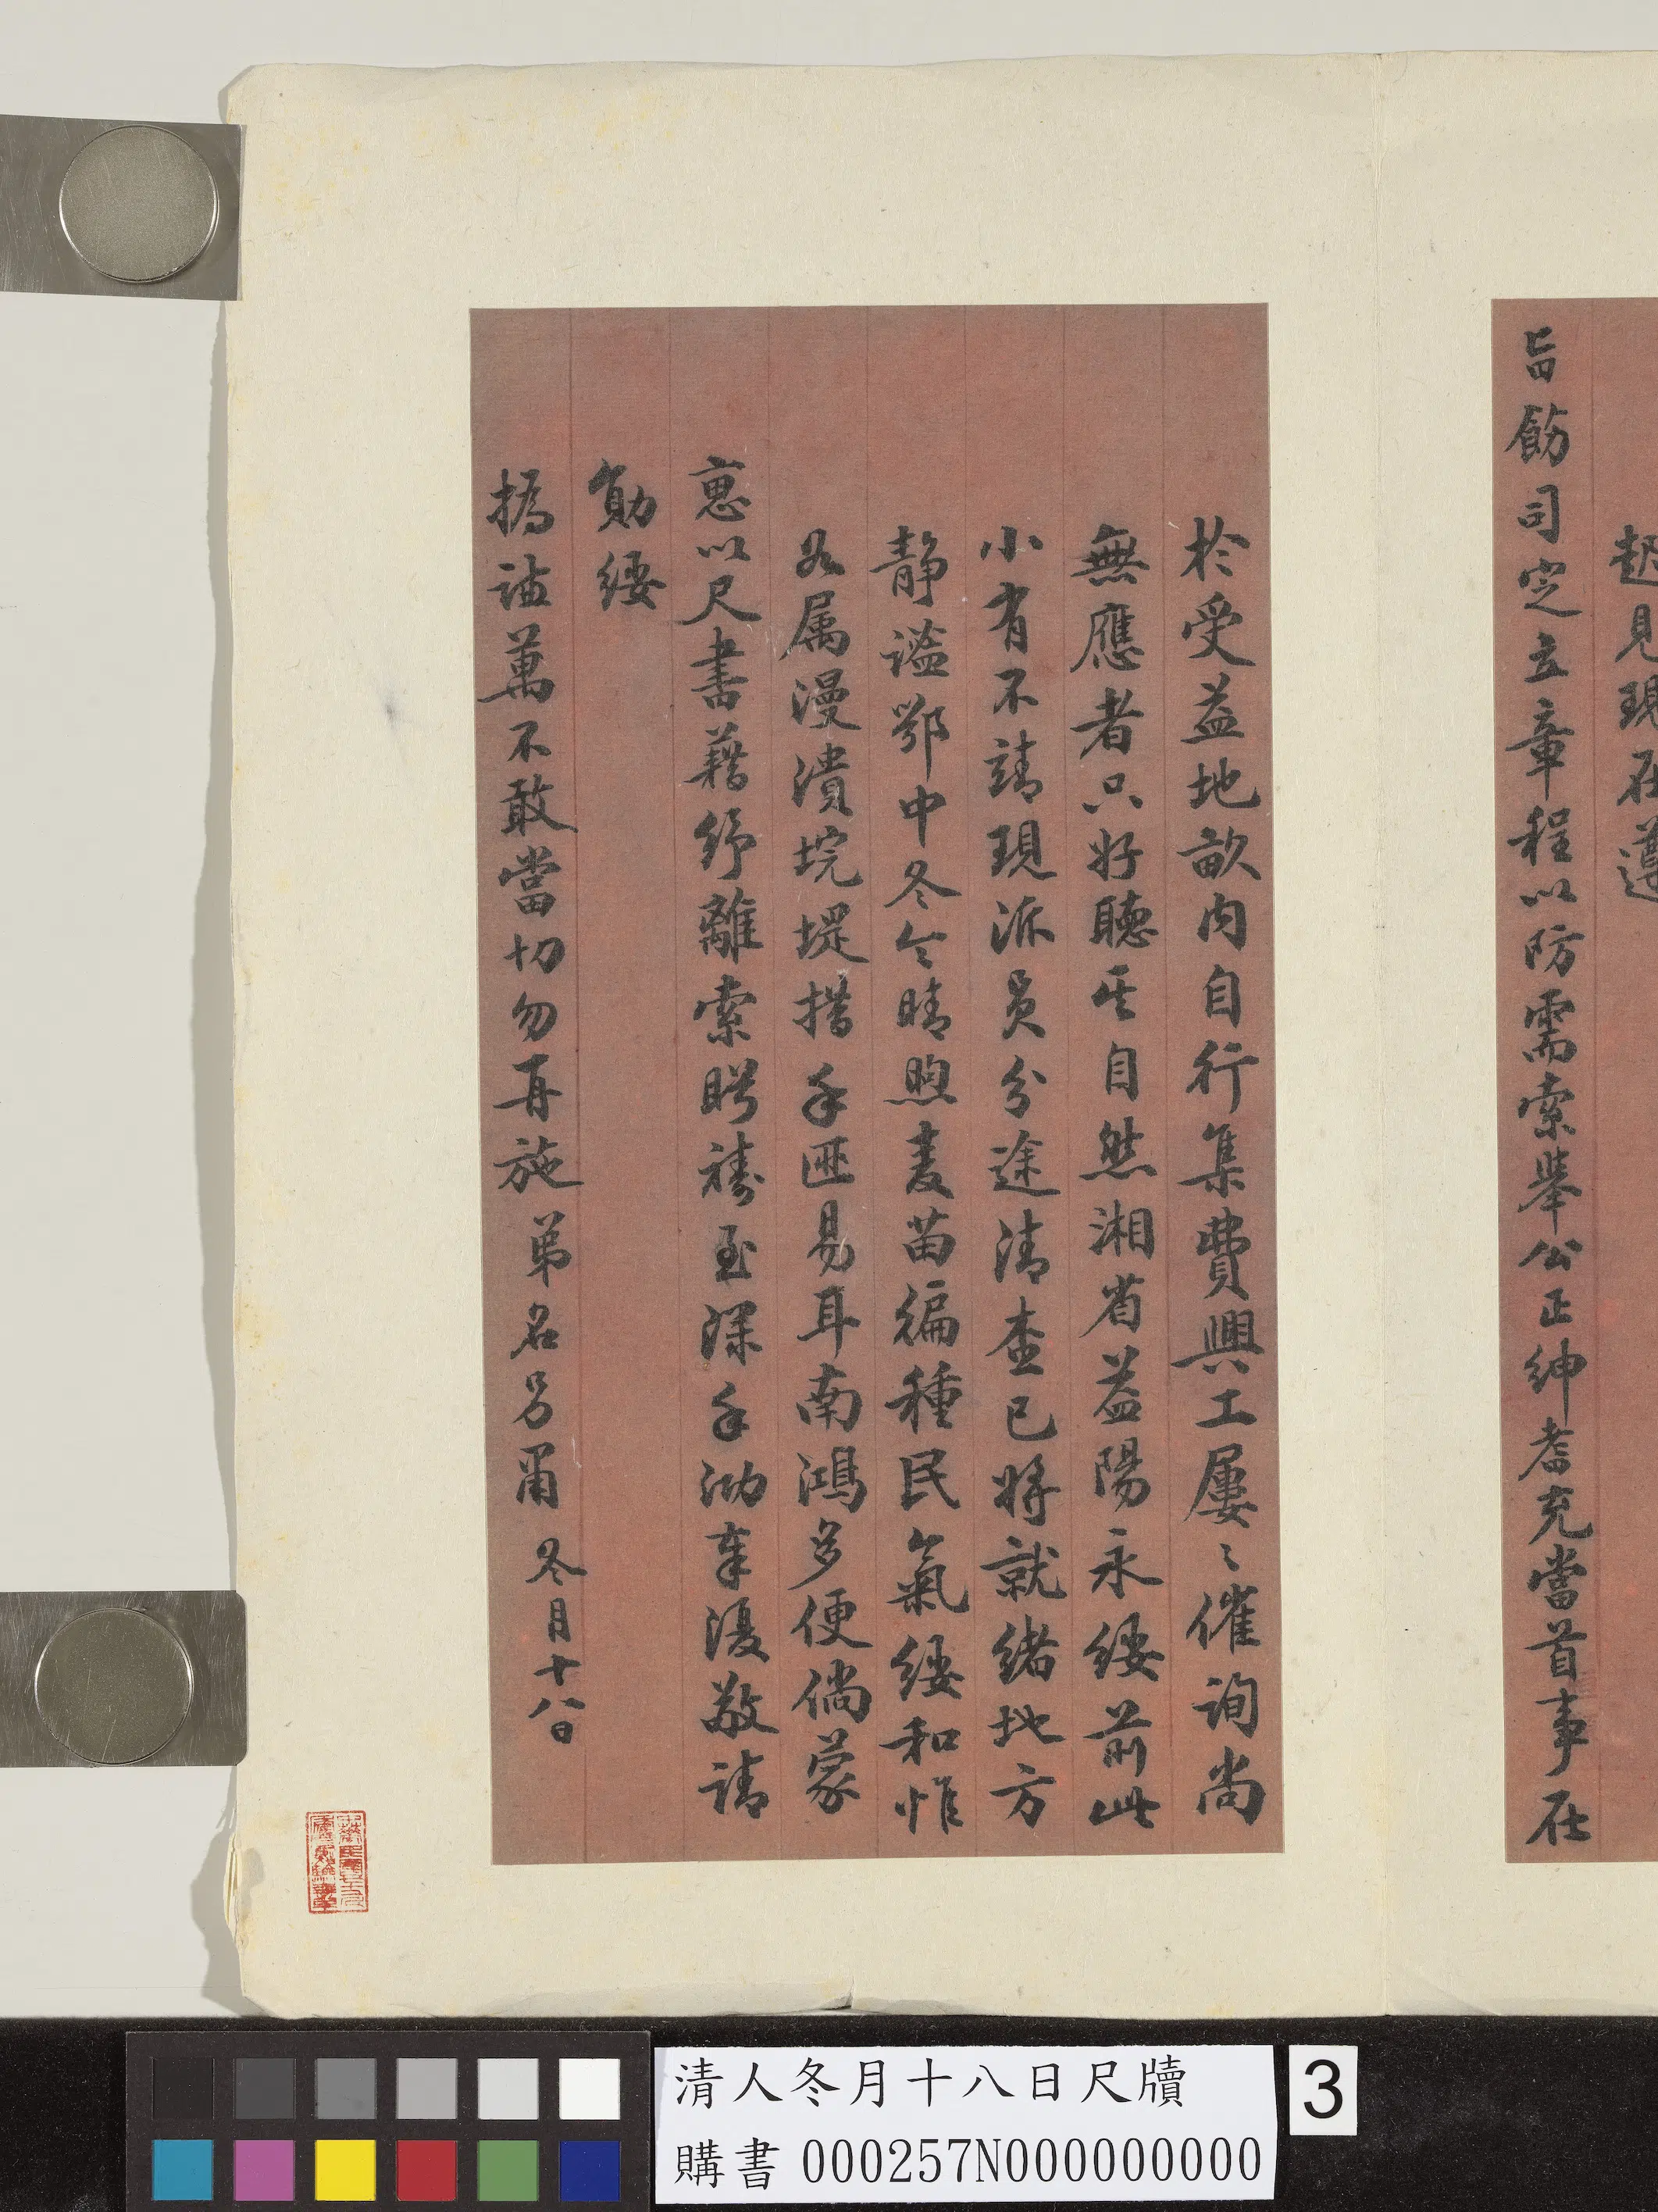 趨見現在遵
旨飭司定立章程以防需索舉公正紳耆充當首事在
於受益地畝內自行集費興工屢〻催詢尚
無應者只好聽其自然湘省益陽永綏前此
小有不靖現派員分途清查已將就緒地方
靜謐鄂中冬令晴煦麦苗徧種民氣綏和惟
以属漫潰垸堤措手匪易耳南鴻多便倘蒙
惠以尺書藉紓離索盼禱至深手泐奉復敬請
勛綏
撝謙萬不敢當切勿再施 弟名另肅 冬月十八日
清人冬月十八日尺牘
購書 000257N000000000
3